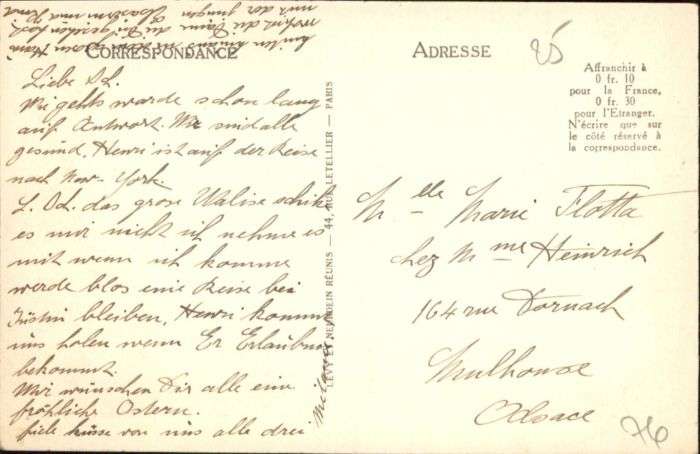 CORRESPONDANCE
Liebe Od.
Wie gehts warde schon lang
auf Antwort. Wir sind alle
gesund, Henri ist auf der Reise
nach New-York.
L. Od. das grose Walise schik
es mir nicht ich nehme es
mit wenn ich komme
werde blos eine Reise bei
bleiben, Henri kommt
uns holen wenn Er Erlaubnis
bekommt.
Wir wünschen Dir alle eine
fröhliche Ostern.
fiele küsse von uns alle drei
LEVY ET NEURDEIN RÉUNIS — 44, RUE LETELLIER — PARIS
ADRESSE
25
Affranchir à
0 fr. 10
pour la France,
0 fr. 30
pour l'Etranger.
N'écrire que sur
le côté réservé à
la correspondance.
Mlle Marie Flotta
chez Mme Heinrich
164 rue Dornach
Mulhouse
Alsace
76